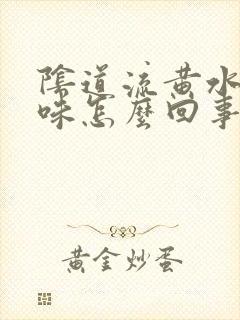 陰道流黃水
味怎麼回事
黃金炒蛋